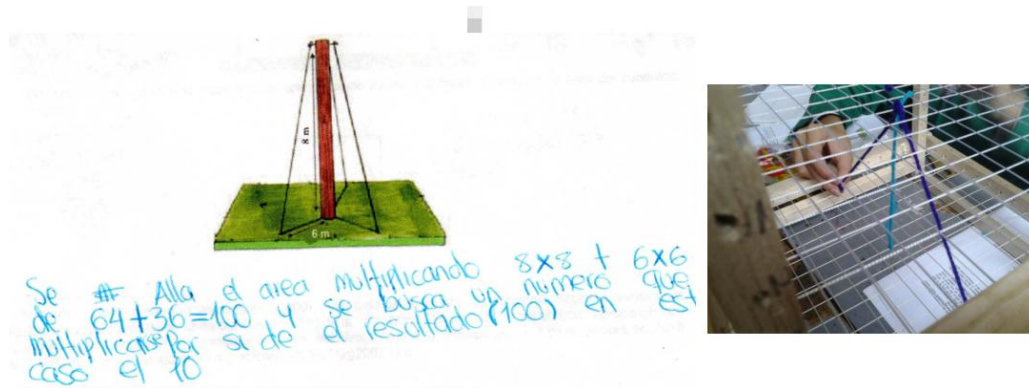 8 m
6 m
Se Alla el area multiplicando 8x8 + 6x6
de 64+36=100 y se busca un numero que
multiplicase por si de el resultado (100) en est
caso el 10